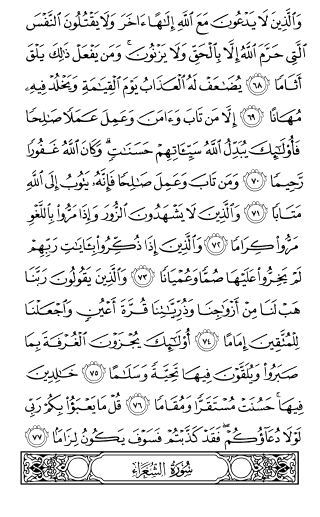 وَالَّذِينَ لَا يَدْعُونَ مَعَ اللَّهِ إِلَٰهًا ءَاخَرَ وَلَا يَقْتُلُونَ النَّفْسَ
الَّتِي حَرَّمَ اللَّهُ إِلَّا بِالْحَقِّ وَلَا يَزْنُونَ ۚ وَمَن يَفْعَلْ ذَٰلِكَ يَلْقَ
أَثَامًا ٦٨ يُضَٰعَفْ لَهُ الْعَذَابُ يَوْمَ الْقِيَٰمَةِ وَيَخْلُدْ فِيهِۦ
مُهَانًا ٦٩ إِلَّا مَن تَابَ وَءَامَنَ وَعَمِلَ عَمَلًا صَٰلِحًا
فَأُو۟لَٰٓئِكَ يُبَدِّلُ اللَّهُ سَيِّـَٔاتِهِمْ حَسَنَٰتٍ ۗ وَكَانَ اللَّهُ غَفُورًا
رَّحِيمًا ٧٠ وَمَن تَابَ وَعَمِلَ صَٰلِحًا فَإِنَّهُۥ يَتُوبُ إِلَى اللَّهِ
مَتَابًا ٧١ وَالَّذِينَ لَا يَشْهَدُونَ الزُّورَ وَإِذَا مَرُّوا۟ بِاللَّغْوِ
مَرُّوا۟ كِرَامًا ٧٢ وَالَّذِينَ إِذَا ذُكِّرُوا۟ بِـَٔايَٰتِ رَبِّهِمْ
لَمْ يَخِرُّوا۟ عَلَيْهَا صُمًّا وَعُمْيَانًا ٧٣ وَالَّذِينَ يَقُولُونَ رَبَّنَا
هَبْ لَنَا مِنْ أَزْوَٰجِنَا وَذُرِّيَّٰتِنَا قُرَّةَ أَعْيُنٍ وَاجْعَلْنَا
لِلْمُتَّقِينَ إِمَامًا ٧٤ أُو۟لَٰٓئِكَ يُجْزَوْنَ الْغُرْفَةَ بِمَا
صَبَرُوا۟ وَيُلَقَّوْنَ فِيهَا تَحِيَّةً وَسَلَٰمًا ٧٥ خَٰلِدِينَ
فِيهَا ۚ حَسُنَتْ مُسْتَقَرًّا وَمُقَامًا ٧٦ قُلْ مَا يَعْبَؤُا۟ بِكُمْ رَبِّي
لَوْلَا دُعَآؤُكُمْ ۖ فَقَدْ كَذَّبْتُمْ فَسَوْفَ يَكُونُ لِزَامًا ٧٧
سُورَةُ الشُّعَرَاءِ